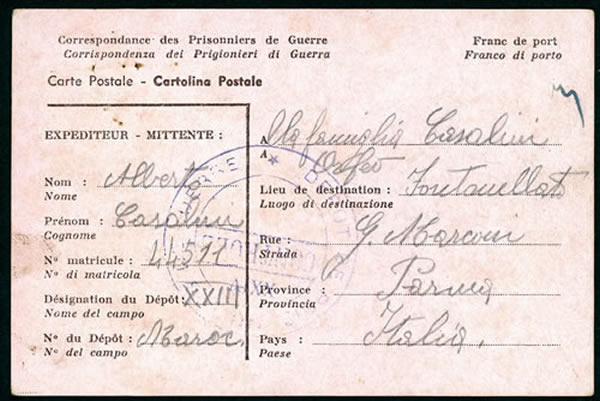 Correspondance des Prisonniers de Guerre
Corrispondenza dei Prigionieri di Guerra
Franc de port
Franco di porto
Carte Postale - Cartolina Postale
EXPEDITEUR - MITTENTE :
Nom : Albert
Nome
Prénom : Casalini
Cognome
Nº matricule : 44517
Nº di matricola
Désignation du Dépôt : XXIII
Nome del campo
Nº du Dépôt : Maroc.
Nº del campo
A Alla famiglia Casalini
A Orfeo
Lieu de destination : Fontanellato
Luogo di destinazione
Rue : G. Marconi
Strada
Province : Parma
Provincia
Pays : Italia.
Paese